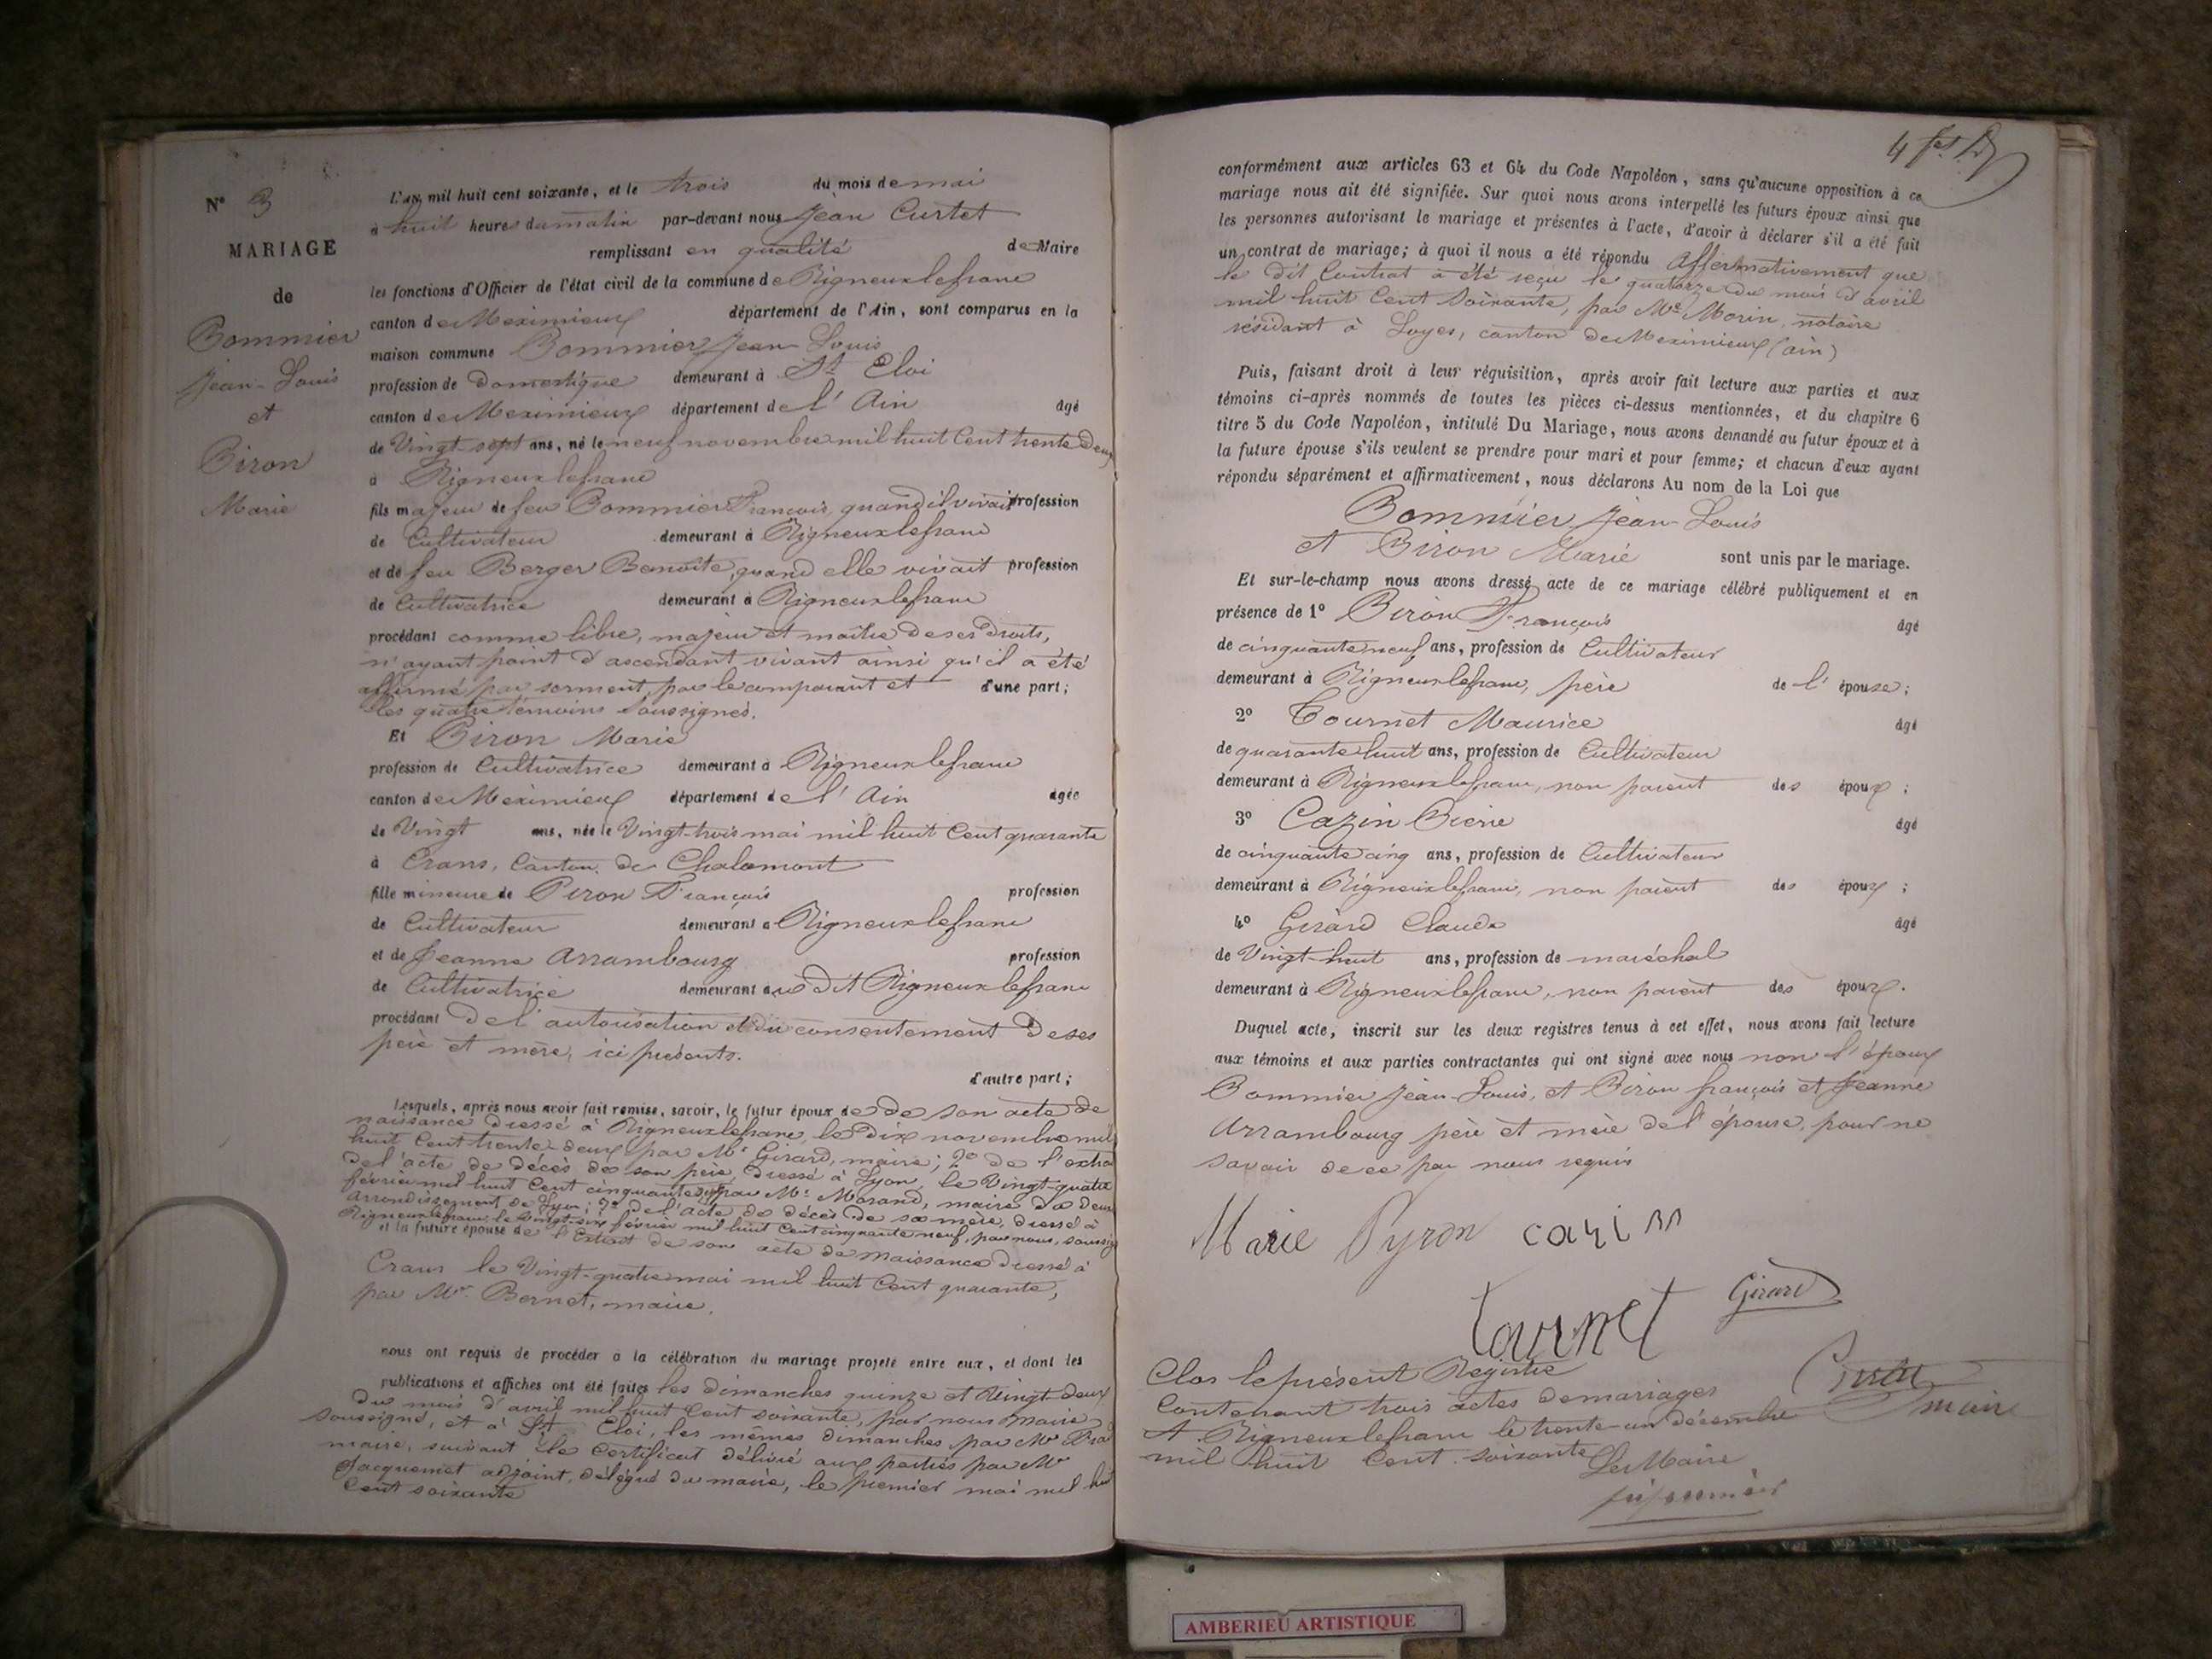 N° 3
MARIAGE
de
Pommier
Jean-Louis
et
Piron
Marie
L'an mil huit cent soixante, et le trois du mois de mai
à huit heures du matin par-devant nous Jean Curtet
remplissant en qualité de Maire
les fonctions d'Officier de l'état civil de la commune de Rigneuxlefranc
canton de Meximieux département de l'Ain, sont comparus en la
maison commune Pommier Jean-Louis
profession de Domestique demeurant à St Eloi
canton de Meximieux département de l'Ain âgé
de Vingt-sept ans, né le neuf novembre mil huit Cent trente Deux
à Rigneuxlefranc
fils majeur de feu Pommier François, quand il vivait profession
de Cultivateur demeurant à Rigneuxlefranc
et de feu Berger Benoite, quand elle vivait profession
de Cultivatrice demeurant à Rigneuxlefranc
procédant comme libre, majeur et maître de ses Droits,
n'ayant point d'ascendant vivant ainsi qu'il a été
affirmé par serment, par le comparant et d'une part;
les quatre témoins soussignés.
Et Piron Marie
profession de Cultivatrice demeurant à Rigneuxlefranc
canton de Meximieux département de l'Ain agée
de Vingt ans, née le Vingt-trois mai mil huit Cent quarante
à Crans, Canton de Chalamont
fille mineure de Piron François profession
de Cultivateur demeurant à Rigneuxlefranc
et de Jeanne Arrambourg profession
de Cultivatrice demeurant au dit Rigneuxlefranc
procédant De l'autorisation et du consentement De ses
père et mère, ici présents.
d'autre part;
Lesquels, après nous avoir fait remise, savoir, le futur époux de de son acte de
naissance dressé à Rigneuxlefranc, le Dix novembre mil
huit Cent trente deux par Mr Girard, maire; 2° de l'extra
de l'acte de décès de son père, dressé à Lyon, le Vingt-quatre
février mil huit Cent cinquante par Mr Morand, maire du deux
arrondissement de Lyon; 3° de l'acte de décès de sa mère, dressé à
Rigneuxlefranc le Vingt-six février mil huit Cent cinquante neuf, par nous, soussig
et la future épouse de l'Extrait de son acte de Naissance dressé à
Crans le Vingt-quatre mai mil huit Cent quarante,
par Mr. Bernet, maire.
nous ont requis de procéder à la célébration du mariage projeté entre eux, et dont les
publications et affiches ont été faites les dimanches quinze et Vingt-deux
du mois d'avril mil huit Cent soixante, par nous maire
soussigné, et à St Eloi, les mêmes dimanches par Mr
maire, suivant le Certificat délivré aux parties par Mr
Jacquemet adjoint, délégué du maire, le premier mai mil hui
Cent soixante
4
conformément aux articles 63 et 64 du Code Napoléon, sans qu'aucune opposition à ce
mariage nous ait été signifiée. Sur quoi nous avons interpellé les futurs époux ainsi que
les personnes autorisant le mariage et présentes à l'acte, d'avoir à déclarer s'il a été fait
un contrat de mariage; à quoi il nous a été répondu affermativement que
le dit Contrat a été reçu le quatorze du mois d'avril
mil huit Cent soixante, par Me Morin, notaire
résidant à Loyes, canton de Meximieux (ain)
Puis, faisant droit à leur réquisition, après avoir fait lecture aux parties et aux
témoins ci-après nommés de toutes les pièces ci-dessus mentionnées, et du chapitre 6
titre 5 du Code Napoléon, intitulé Du Mariage, nous avons demandé au futur époux et à
la future épouse s'ils veulent se prendre pour mari et pour femme; et chacun d'eux ayant
répondu séparément et affirmativement, nous déclarons Au nom de la Loi que
Pommier Jean-Louis
et Piron Marie sont unis par le mariage.
Et sur-le-champ nous avons dressé acte de ce mariage célébré publiquement et en
présence de 1° Piron François âgé
de cinquante neuf ans, profession de Cultivateur
demeurant à Rigneuxlefranc, père de l'épouse;
2° Tournet Maurice âgé
de quarante huit ans, profession de Cultivateur
demeurant à Rigneuxlefranc, non parent des époux;
3° Cazin Pierre âgé
de cinquante cinq ans, profession de Cultivateur
demeurant à Rigneuxlefranc, non parent des époux;
4° Girard Claude âgé
de Vingt-huit ans, profession de maréchal
demeurant à Rigneuxlefranc, non parent des époux.
Duquel acte, inscrit sur les deux registres tenus à cet effet, nous avons fait lecture
aux témoins et aux parties contractantes qui ont signé avec nous non l'époux
Pommier Jean-Louis, et Piron françois et Jeanne
Arrambourg père et mère de l'épouse, pour ne
savoir de ce par nous requis
Marie Pyron cazinn
tournet Girard
Clos le présent Registre
Contenant trois actes de mariages
A Rigneuxlefranc le trente-un décembre
mil huit Cent soixante
Curtet
maire
Le Maire
AMBERIEU ARTISTIQUE